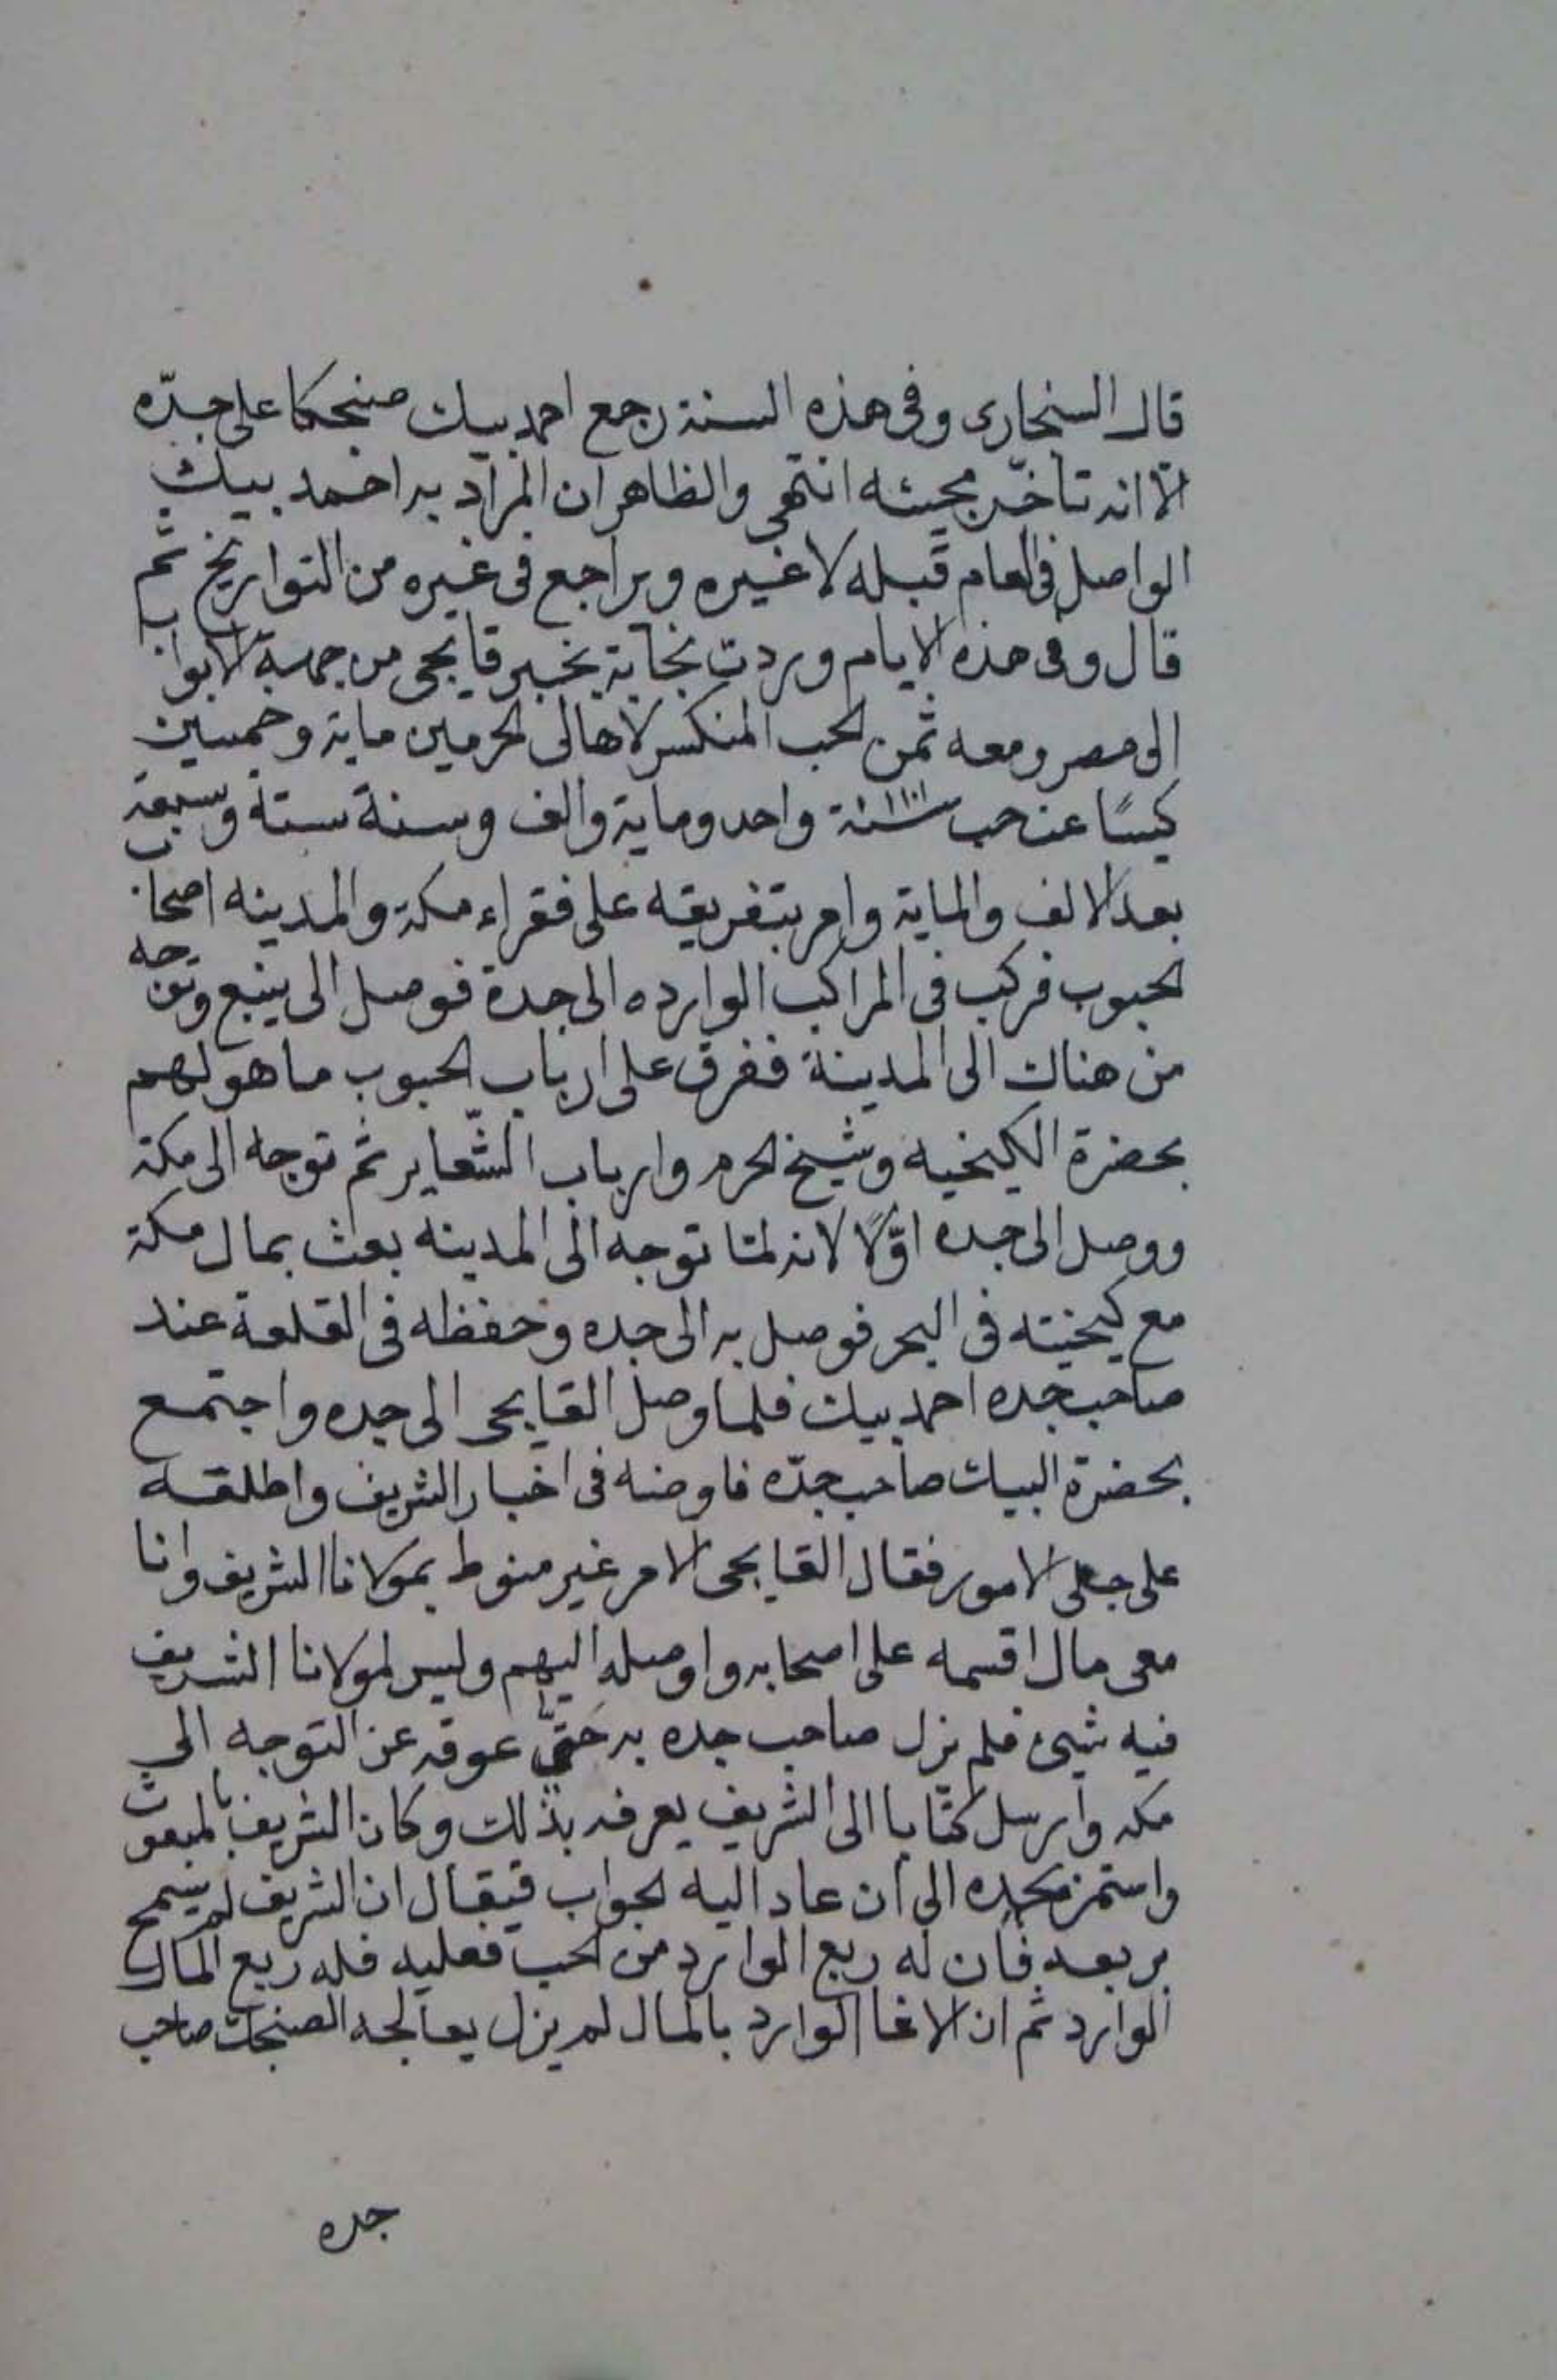 قال السنجارى وفى هذه السنة رجع احمد بيك صنجكا على جدّه
الا انه تاخّر مجيئه انتهى والظاهر ان المراد به احمد بيك
الواصل فى العام قبله لا غيره ويراجع فى غيره من التواريخ ثم
قال وفى هذه الايام وردت نجابة بخبر قابجى من جهة الابواب
الى مصر ومعه ثمن الحب المنكسر لاهالى الحرمين ماية وخمسين
كيسًا عن حب سنة ١١٠١ واحد وماية والف وسنة ستة وسبعة
بعد الالف والماية وامر بتفريقه على فقراء مكة والمدينه اصحاب
الحبوب فركب فى المراكب الوارده الى جدة فوصل الى ينبع وتوجه
من هناك الى المدينة ففرق على ارباب الحبوب ما هو لهم
بحضرة الكيخيه وشيخ الحرم وارباب الشّعاير ثم توجه الى مكة
ووصل الى جده اوّلًا لانه لمّا توجه الى المدينه بعث بمال مكة
مع كيخيته فى البحر فوصل به الى جده وحفظه فى القلعة عند
صاحب جده احمد بيك فلما وصل القابجى الى جده واجتمع
بحضرة البيك صاحب جدّه فاوضه فى اخبار الشريف واطلقه
على جلى الامور فقال القابجى الامر غير منوط بمولانا الشريف وانا
معى مال اقسمه على اصحابه واوصله اليهم وليس لمولانا الشريف
فيه شيئ فلم يزل صاحب جده به حتىّ عوقه عن التوجه الى
مكه وارسل كتابا الى الشريف يعرفه بذلك وكان الشريف بالمبعوث
واستمر بجده الى ان عاد اليه الجواب فيقال ان الشريف لم يسمح
بربعه فان له ربع الوارد من الحب فعليه فله ربع المال
الوارد ثم ان الاغا الوارد بالمال لم يزل يعالجه الصنجك صاحب
جده